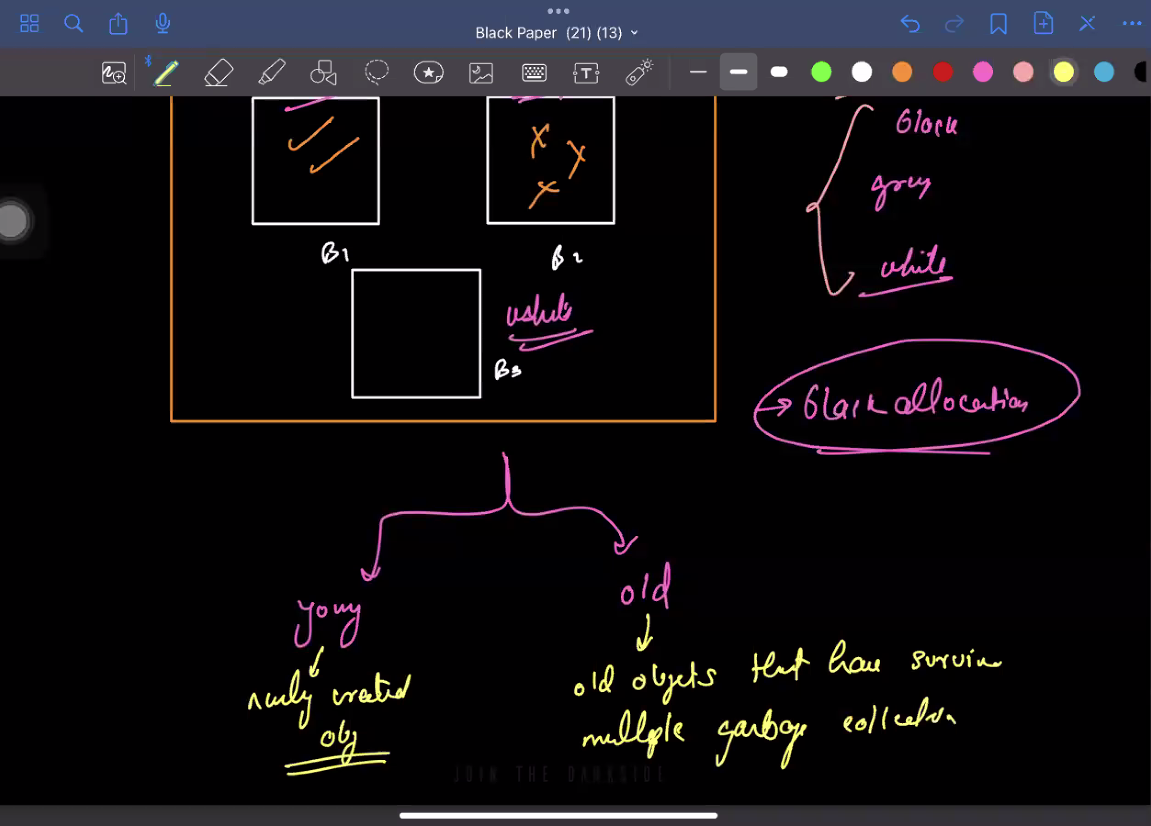 Black Paper (21) (13)
Black
grey
white
B1
B2
white
B3
→ Black allocation
young
old
newly created
obj
old objets that have survive
multiple garbage collection
JOIN THE DARKSIDE